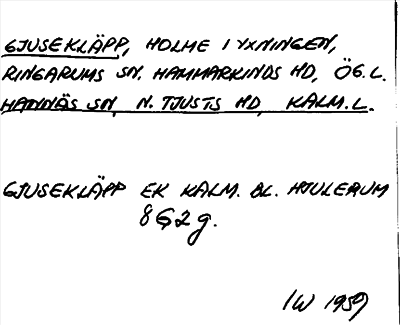 GJUSEKLÄPP, HOLME I YXNINGEN,
RINGARUMS SN. HAMMARKINDS HD, ÖG. L.
HANNÄS SN, N. TJUSTS HD, KALM. L.
GJUSEKLÄPP EK KALM. BL. HJULERUM
8G2g.
IW 1959